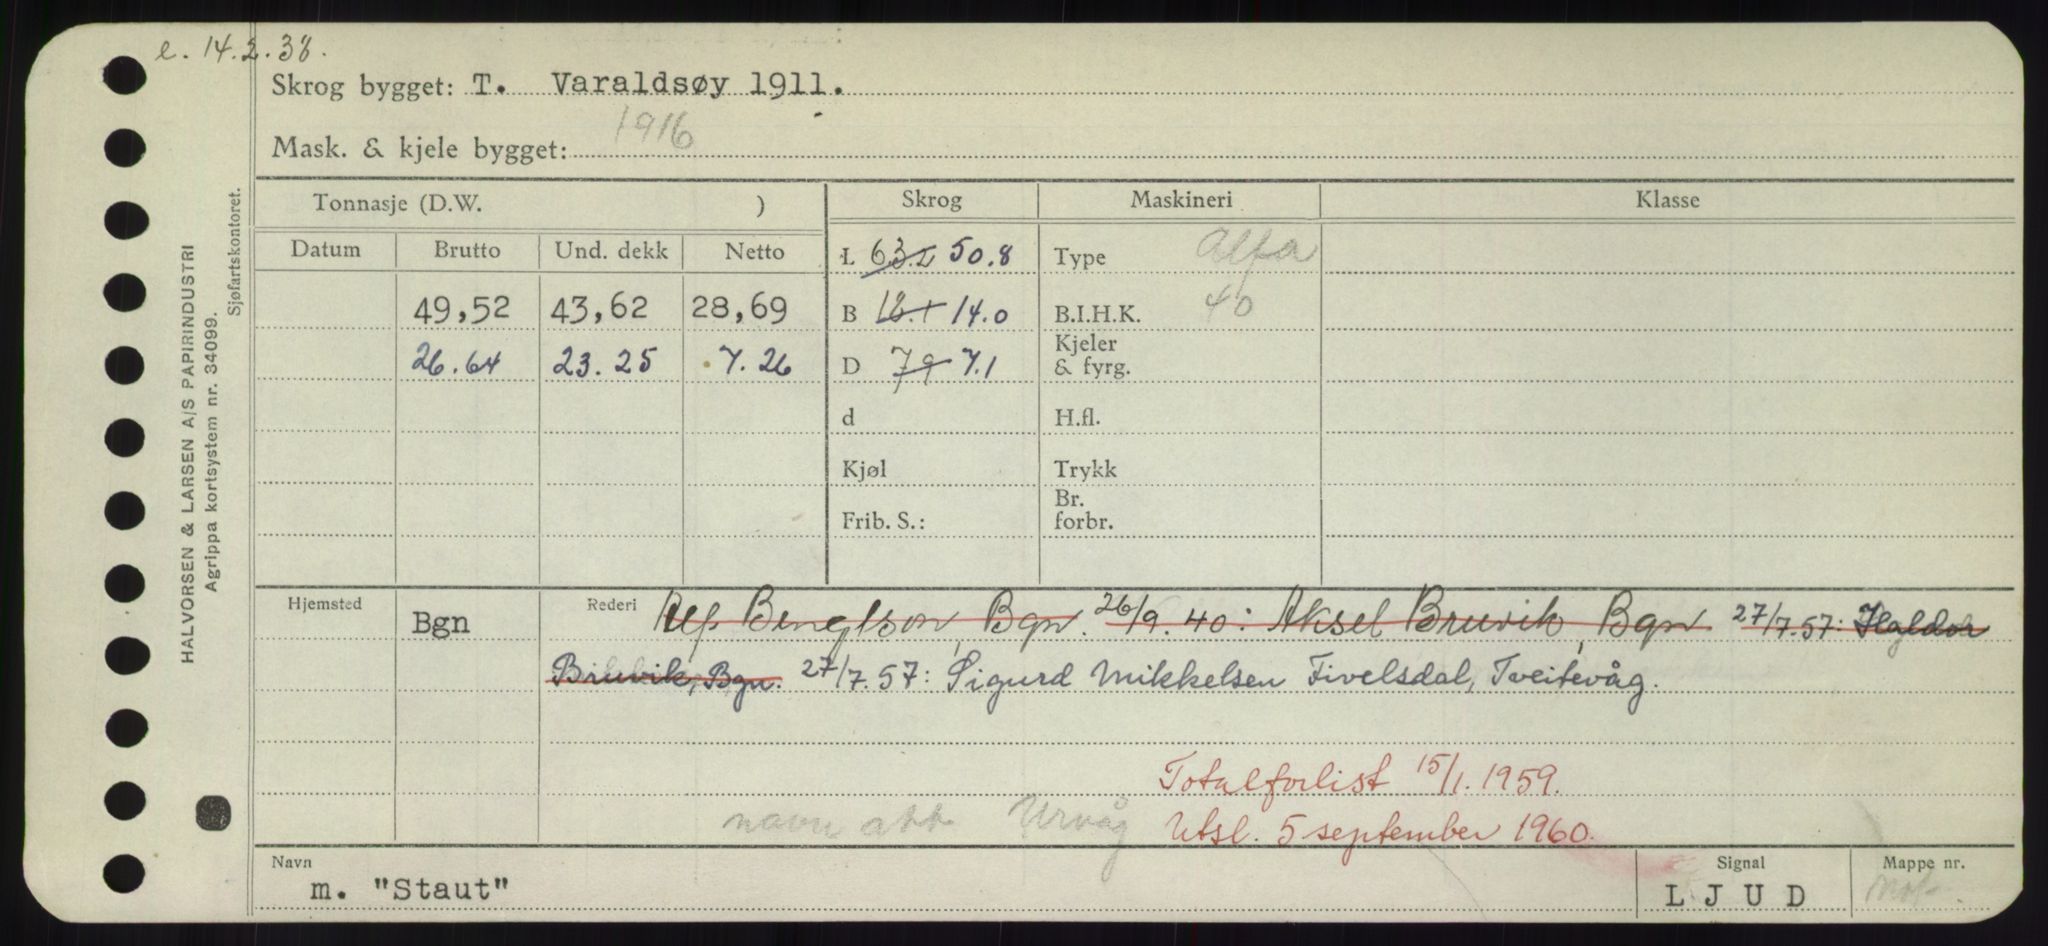 e. 14.2.38.
Skrog bygget: T. Varaldsøy 1911.
1916
Mask. & kjele bygget:
HALVORSEN & LARSEN A/S PAPIRINDUSTRI
Agrippa kortsystem nr. 34099.
Sjøfartskontoret.
Tonnasje (D.W. ) Skrog Maskineri Klasse
Datum Brutto Und. dekk Netto
L 63.2 50.8 Type Alfa
49,52 43,62 28,69 B 18.1 14.0 B.I.H.K. 40
26.64 23.25 7.26 D 7.9 7.1 Kjeler & fyrg.
d H.fl.
Kjøl Trykk
Frib. S.: Br. forbr.
Hjemsted Bgn Rederi Alf Bengtson, Bgn. 26/9.40: Aksel Bruvik, Bgn 27/7.57: Haldor
Bruvik, Bgn. 27/7.57: Sigurd Mikkelsen Fivelsdal, Tveitevåg.
Totalforlist 15/1.1959.
navn att Urvåg Utsl. 5 september 1960.
Navn Signal Mappe nr.
m. "Staut" LJUD Mot.